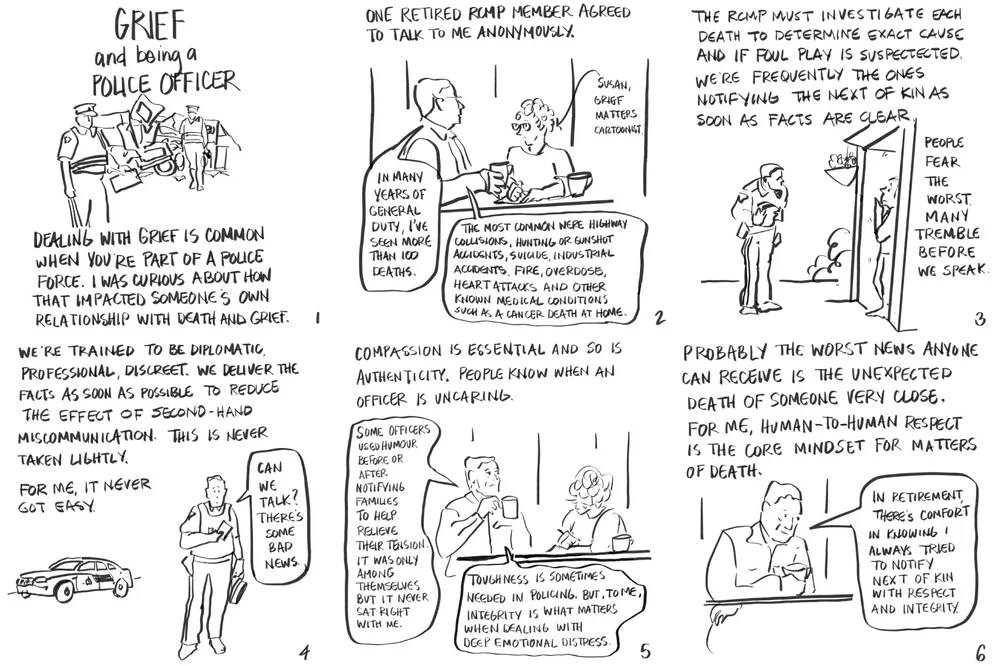 GRIEF
and being a
POLICE OFFICER
DEALING WITH GRIEF IS COMMON
WHEN YOU'RE PART OF A POLICE
FORCE. I WAS CURIOUS ABOUT HOW
THAT IMPACTED SOMEONE'S OWN
RELATIONSHIP WITH DEATH AND GRIEF.
1
ONE RETIRED RCMP MEMBER AGREED
TO TALK TO ME ANONYMOUSLY.
SUSAN,
GRIEF
MATTERS
CARTOONIST
IN MANY
YEARS OF
GENERAL
DUTY, I'VE
SEEN MORE
THAN 100
DEATHS.
THE MOST COMMON WERE HIGHWAY
COLLISIONS, HUNTING OR GUNSHOT
ACCIDENTS, SUICIDE, INDUSTRIAL
ACCIDENTS, FIRE, OVERDOSE,
HEART ATTACKS AND OTHER
KNOWN MEDICAL CONDITIONS
SUCH AS A CANCER DEATH AT HOME.
2
THE RCMP MUST INVESTIGATE EACH
DEATH TO DETERMINE EXACT CAUSE
AND IF FOUL PLAY IS SUSPECTECTED.
WE'RE FREQUENTLY THE ONES
NOTIFYING THE NEXT OF KIN AS
SOON AS FACTS ARE CLEAR.
PEOPLE
FEAR
THE
WORST.
MANY
TREMBLE
BEFORE
WE SPEAK.
3
WE'RE TRAINED TO BE DIPLOMATIC,
PROFESSIONAL, DISCREET. WE DELIVER THE
FACTS AS SOON AS POSSIBLE TO REDUCE
THE EFFECT OF SECOND-HAND
MISCOMMUNICATION. THIS IS NEVER
TAKEN LIGHTLY.
FOR ME, IT NEVER
GOT EASY.
CAN
WE
TALK?
THERE'S
SOME
BAD
NEWS.
4
COMPASSION IS ESSENTIAL AND SO IS
AUTHENTICITY. PEOPLE KNOW WHEN AN
OFFICER IS UNCARING.
SOME OFFICERS
USED HUMOUR
BEFORE OR
AFTER
NOTIFYING
FAMILIES
TO HELP
RELIEVE
THEIR TENSION.
IT WAS ONLY
AMONG
THEMSELVES
BUT IT NEVER
SAT RIGHT
WITH ME.
TOUGHNESS IS SOMETIMES
NEEDED IN POLICING. BUT, TO ME,
INTEGRITY IS WHAT MATTERS
WHEN DEALING WITH
DEEP EMOTIONAL DISTRESS.
5
PROBABLY THE WORST NEWS ANYONE
CAN RECEIVE IS THE UNEXPECTED
DEATH OF SOMEONE VERY CLOSE.
FOR ME, HUMAN-TO-HUMAN RESPECT
IS THE CORE MINDSET FOR MATTERS
OF DEATH.
IN RETIREMENT,
THERE'S COMFORT
IN KNOWING I
ALWAYS TRIED
TO NOTIFY
NEXT OF KIN
WITH RESPECT
AND INTEGRITY.
6